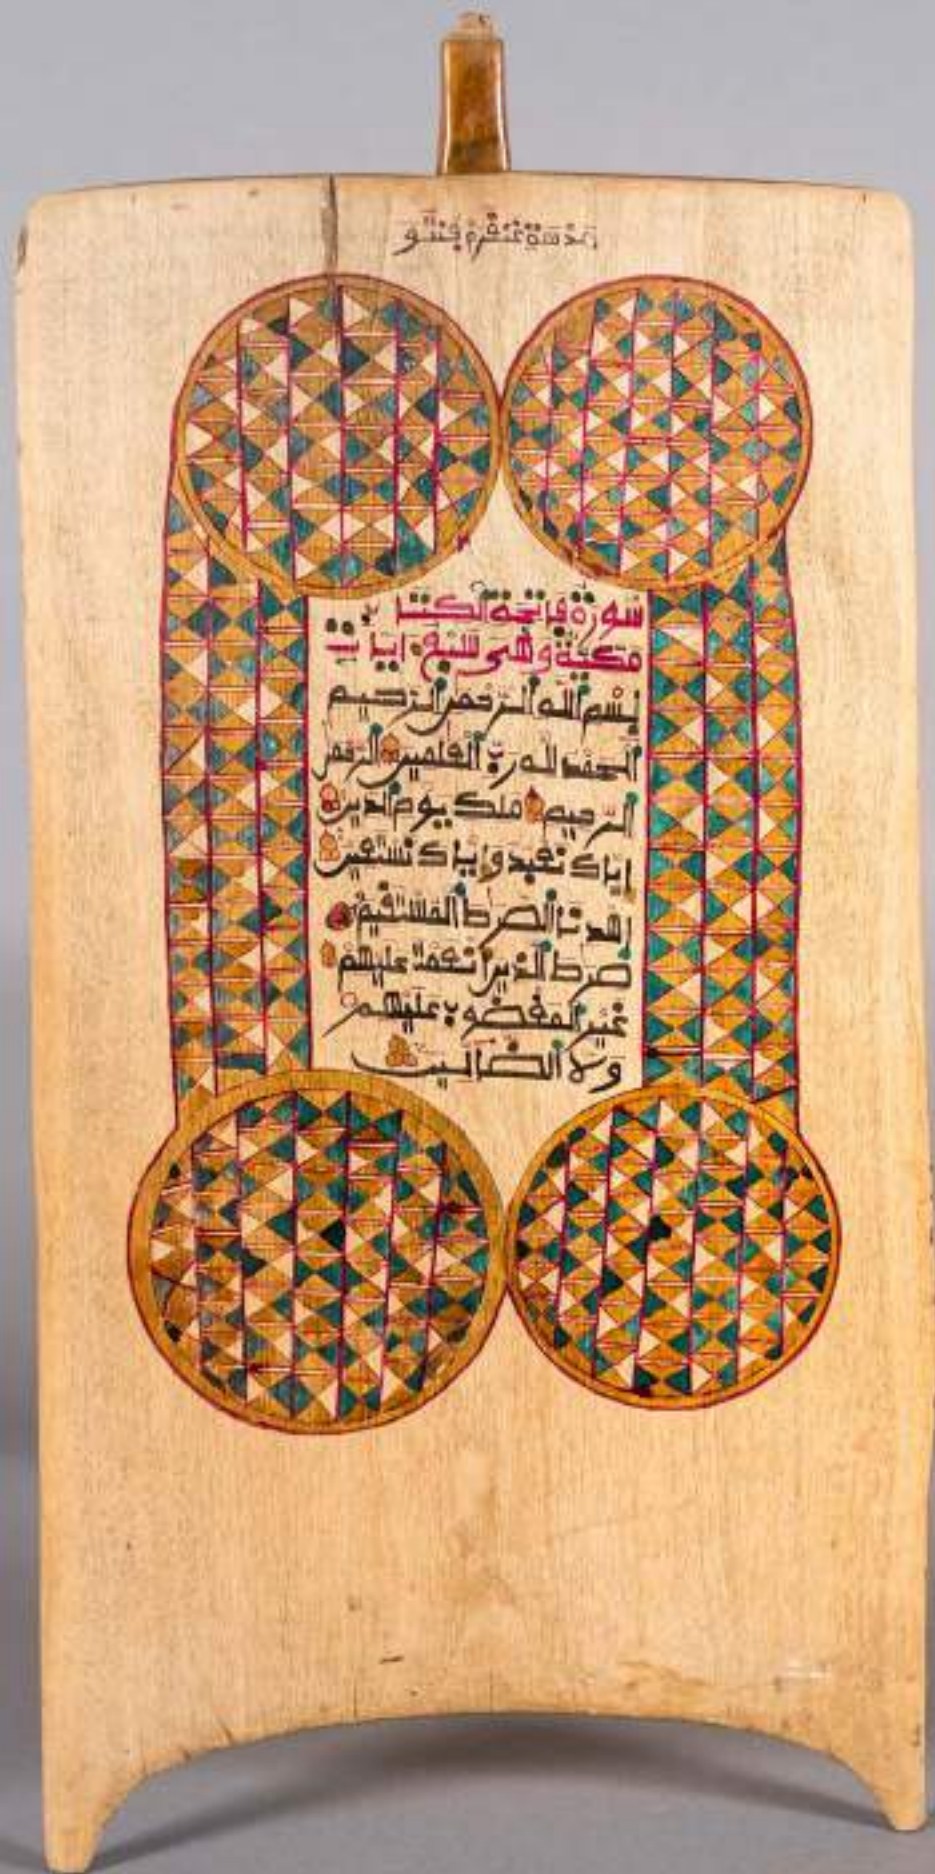 سورة فاتحة الكتاب
مكية وهي سبع ايات
بسم الله الرحمن الرحيم
الحمد لله رب العلمين الرحمن
الرحيم ملك يوم الدين
اياك نعبد واياك نستعين
اهدنا الصرط المستقيم
صرط الذين انعمت عليهم
غير المغضوب عليهم
ولا الضالين